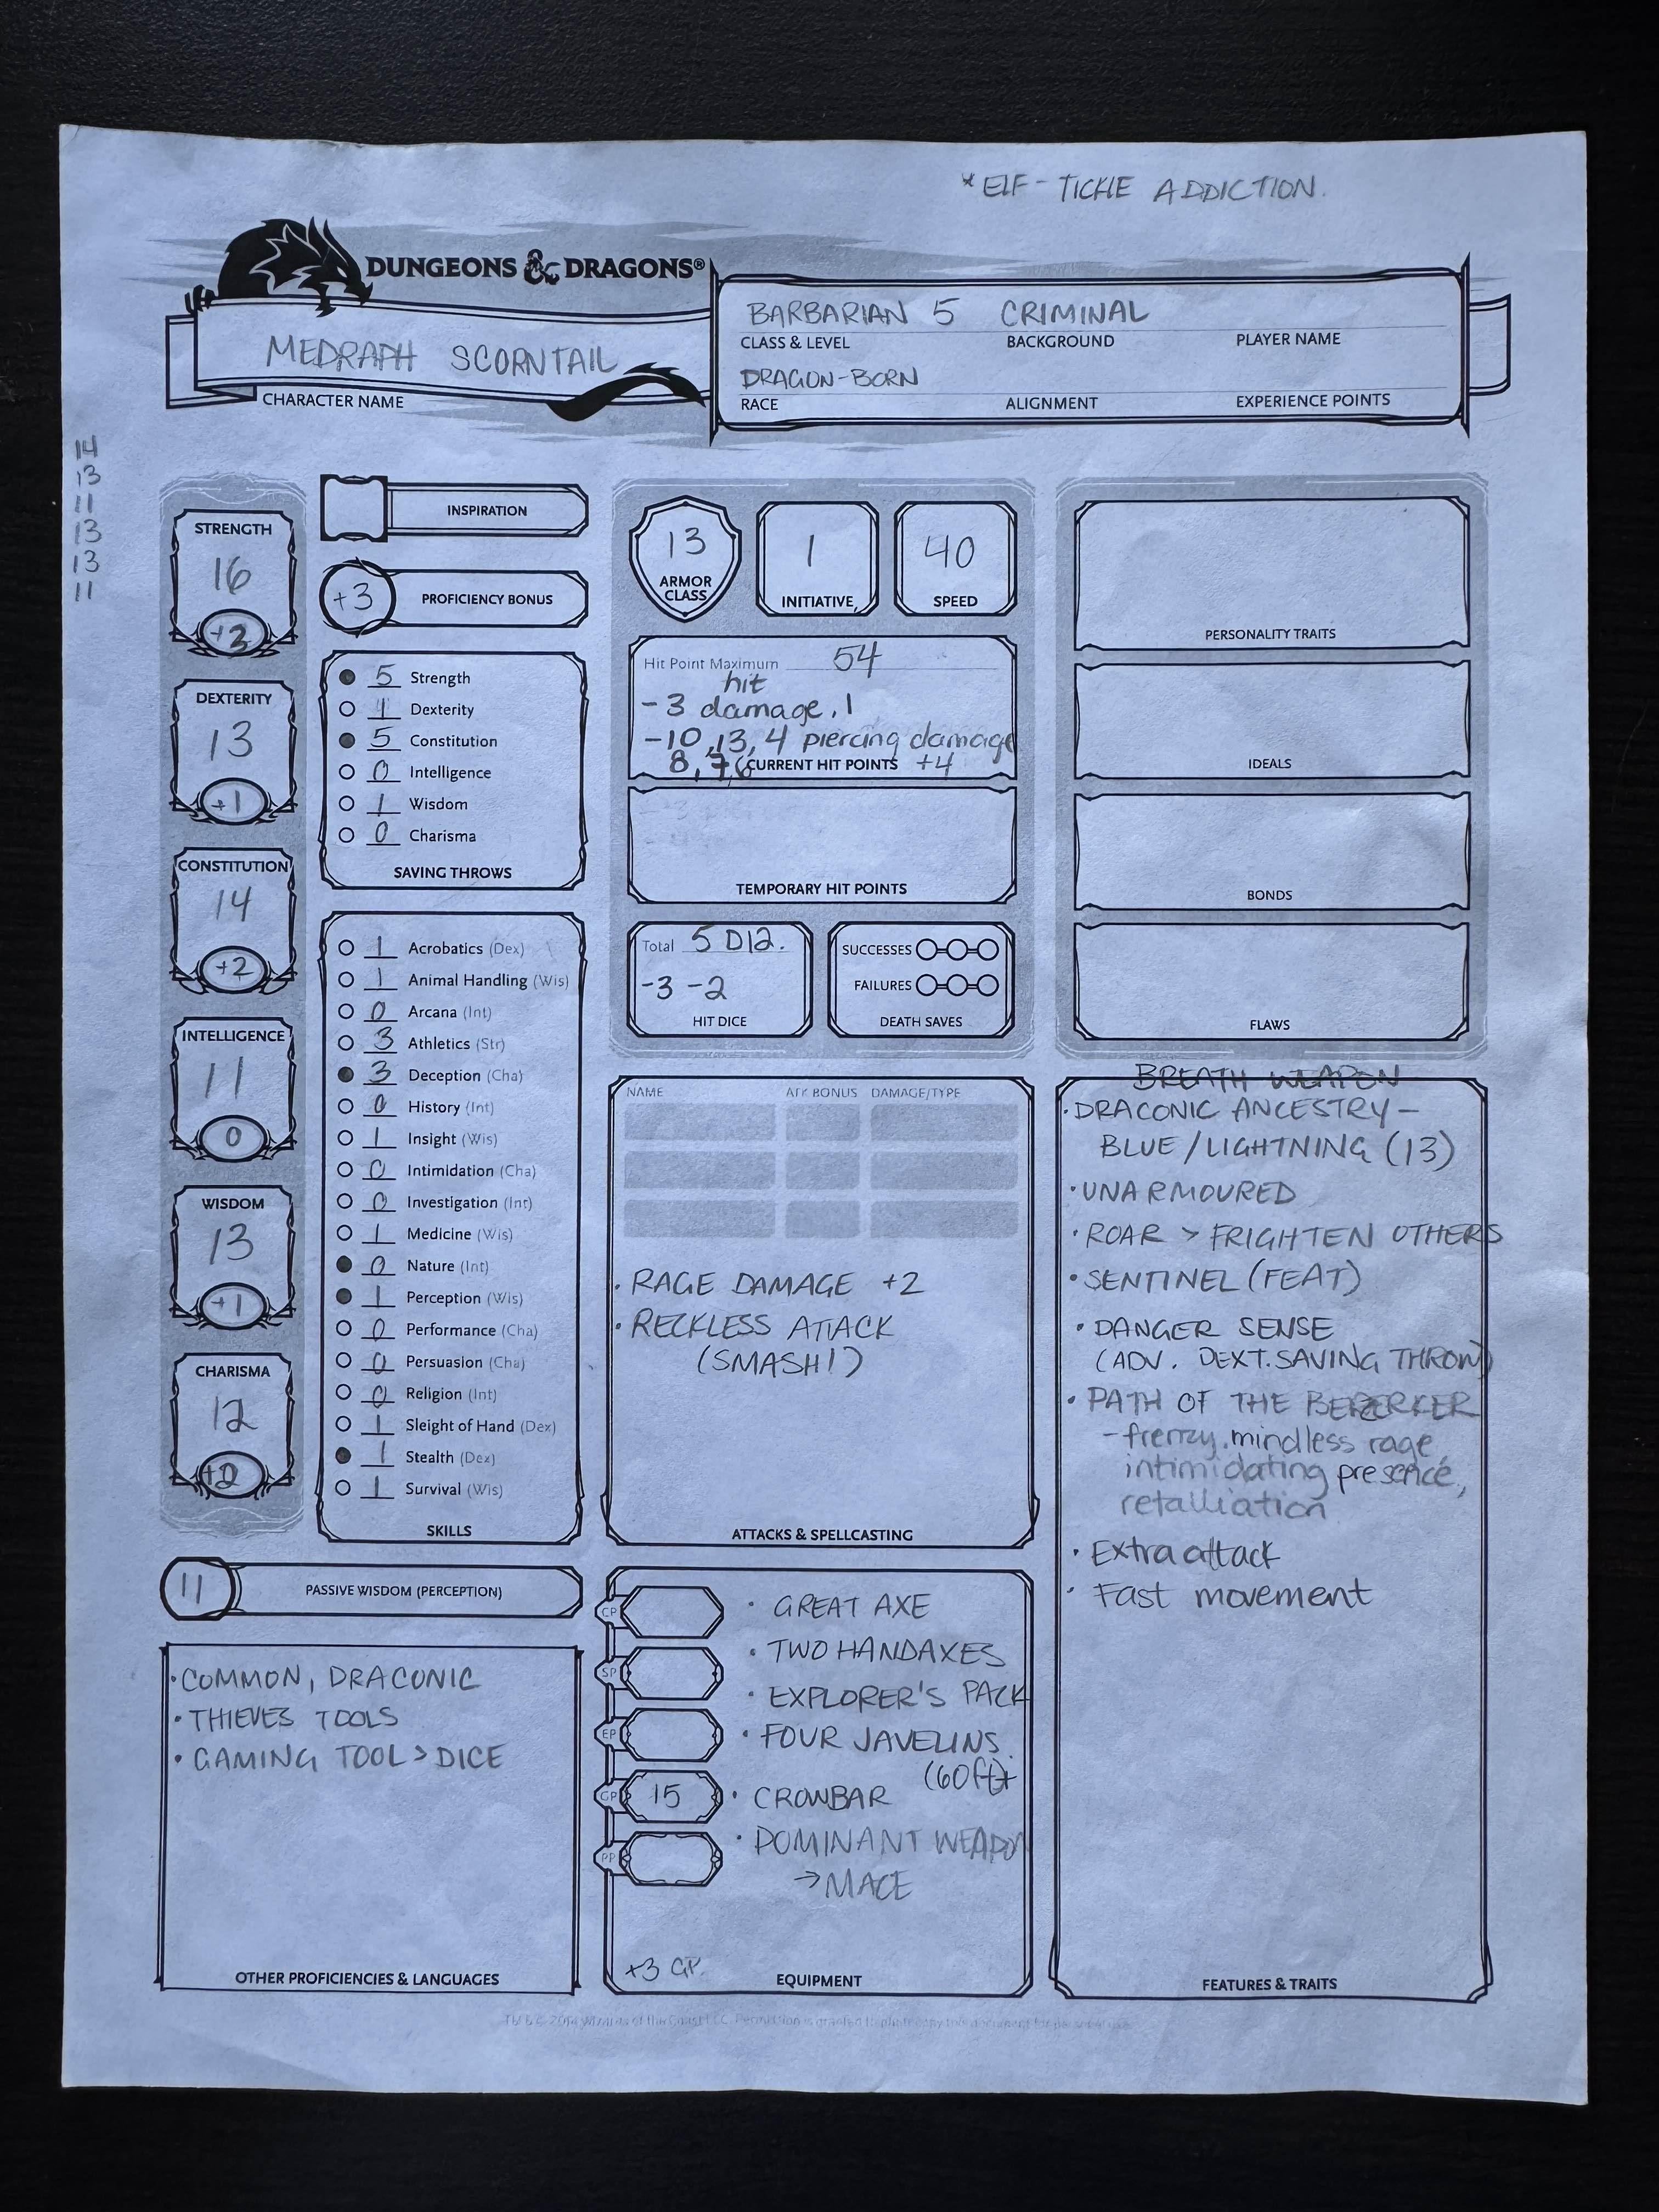 *ELF-TICKLE ADDICTION.
DUNGEONS & DRAGONS®
MEDRAPH SCORNTAIL
CHARACTER NAME
BARBARIAN 5 CRIMINAL
CLASS & LEVEL BACKGROUND PLAYER NAME
DRAGON-BORN
RACE ALIGNMENT EXPERIENCE POINTS
14
13
11
13
13
11
STRENGTH
16
+3
DEXTERITY
13
+1
CONSTITUTION
14
+2
INTELLIGENCE
11
0
WISDOM
13
+1
CHARISMA
12
INSPIRATION
+3 PROFICIENCY BONUS
5 Strength
1 Dexterity
5 Constitution
0 Intelligence
1 Wisdom
0 Charisma
SAVING THROWS
1 Acrobatics (Dex)
1 Animal Handling (Wis)
0 Arcana (Int)
3 Athletics (Str)
3 Deception (Cha)
0 History (Int)
1 Insight (Wis)
0 Intimidation (Cha)
0 Investigation (Int)
1 Medicine (Wis)
0 Nature (Int)
1 Perception (Wis)
0 Performance (Cha)
0 Persuasion (Cha)
0 Religion (Int)
1 Sleight of Hand (Dex)
1 Stealth (Dex)
1 Survival (Wis)
SKILLS
11 PASSIVE WISDOM (PERCEPTION)
• COMMON, DRACONIC
• THIEVES TOOLS
• GAMING TOOL > DICE
OTHER PROFICIENCIES & LANGUAGES
13
ARMOR
CLASS
1
INITIATIVE
40
SPEED
Hit Point Maximum 54
hit
-3 damage, 1
-10, 13, 4 piercing damage
8, 7, 6 CURRENT HIT POINTS +4
TEMPORARY HIT POINTS
Total 5 D12.
-3 -2
HIT DICE
SUCCESSES
FAILURES
DEATH SAVES
NAME ATK BONUS DAMAGE/TYPE
• RAGE DAMAGE +2
• RECKLESS ATTACK
(SMASH!)
ATTACKS & SPELLCASTING
CP
SP
EP
GP 15
PP
• GREAT AXE
• TWO HANDAXES
• EXPLORER'S PACK
• FOUR JAVELINS.
(60ft)
• CROWBAR
• DOMINANT WEAPON
→ MACE
+3 GP.
EQUIPMENT
PERSONALITY TRAITS
IDEALS
BONDS
FLAWS
BREATH WEAPON
• DRACONIC ANCESTRY -
BLUE/LIGHTNING (13)
• UNARMOURED
• ROAR > FRIGHTEN OTHERS
• SENTINEL (FEAT)
• DANGER SENSE
(ADV. DEXT. SAVING THROW)
• PATH OF THE BERZERKER
- frenzy, mindless rage
intimidating presence,
retalliation
• Extra attack
• Fast movement
FEATURES & TRAITS
TM & © 2014 Wizards of the Coast LLC. Permission is granted to photocopy this document for personal use.